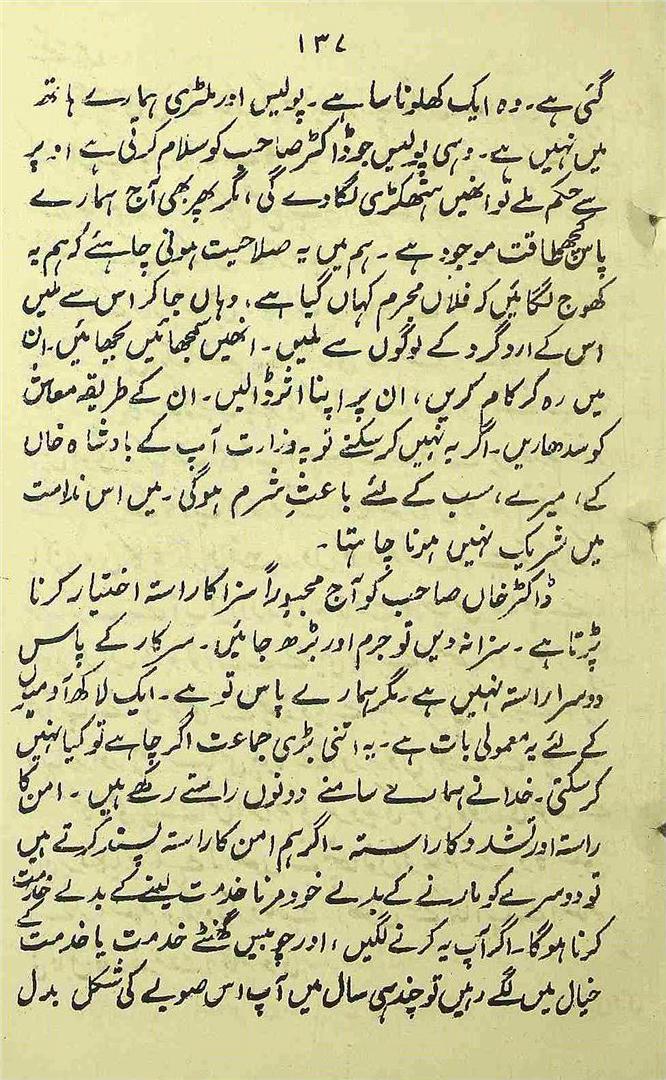 ۱۳۷
گئی ہے۔ وہ ایک کھلونا سا ہے۔ پولیس اور ملٹری ہمارے ہاتھ
میں نہیں ہے۔ وہی پولیس جو ڈاکٹر صاحب کو سلام کرتی ہے اوپر
سے حکم ملے تو انھیں ہتھکڑی لگا دے گی، مگر پھر بھی آج ہمارے
پاس کچھ طاقت موجود ہے۔ ہم میں یہ صلاحیت ہونی چاہئے کہ ہم یہ
کھوج لگائیں کہ فلاں مجرم کہاں گیا ہے، وہاں جا کر اس سے ملیں
اس کے ارد گرد کے لوگوں سے ملیں۔ انھیں سمجھائیں بجھائیں۔ ان
میں رہ کر کام کریں، ان پر اپنا اثر ڈالیں۔ ان کے طریقہ معاش
کو سدھاریں۔ اگر یہ نہیں کر سکتے تو یہ وزارت آپ کے بادشاہ خاں
کے، میرے، سب کے لئے باعثِ شرم ہوگی۔ میں اس ندامت
میں شریک نہیں ہونا چاہتا۔
ڈاکٹر خاں صاحب کو آج مجبوراً سزا کا راستہ اختیار کرنا
پڑتا ہے۔ سزا نہ دیں تو جرم اور بڑھ جائیں۔ سرکار کے پاس
دوسرا راستہ نہیں ہے۔ مگر ہمارے پاس تو ہے۔ ایک لاکھ آدمیوں
کے لئے یہ معمولی بات ہے۔ یہ اتنی بڑی جماعت اگر چاہے تو کیا نہیں
کر سکتی۔ خدا نے ہمارے سامنے دونوں راستے رکھے ہیں۔ امن کا
راستہ اور تشدد کا راستہ۔ اگر ہم امن کا راستہ پسند کرتے ہیں
تو دوسرے کو مارنے کے بدلے خود مرنا خدمت لینے کے بدلے خدمت
کرنا ہوگا۔ اگر آپ یہ کرنے لگیں، اور چوبیس گھنٹے خدمت یا خدمت کے
خیال میں لگے رہیں تو چند ہی سال میں آپ اس صوبے کی شکل بدل